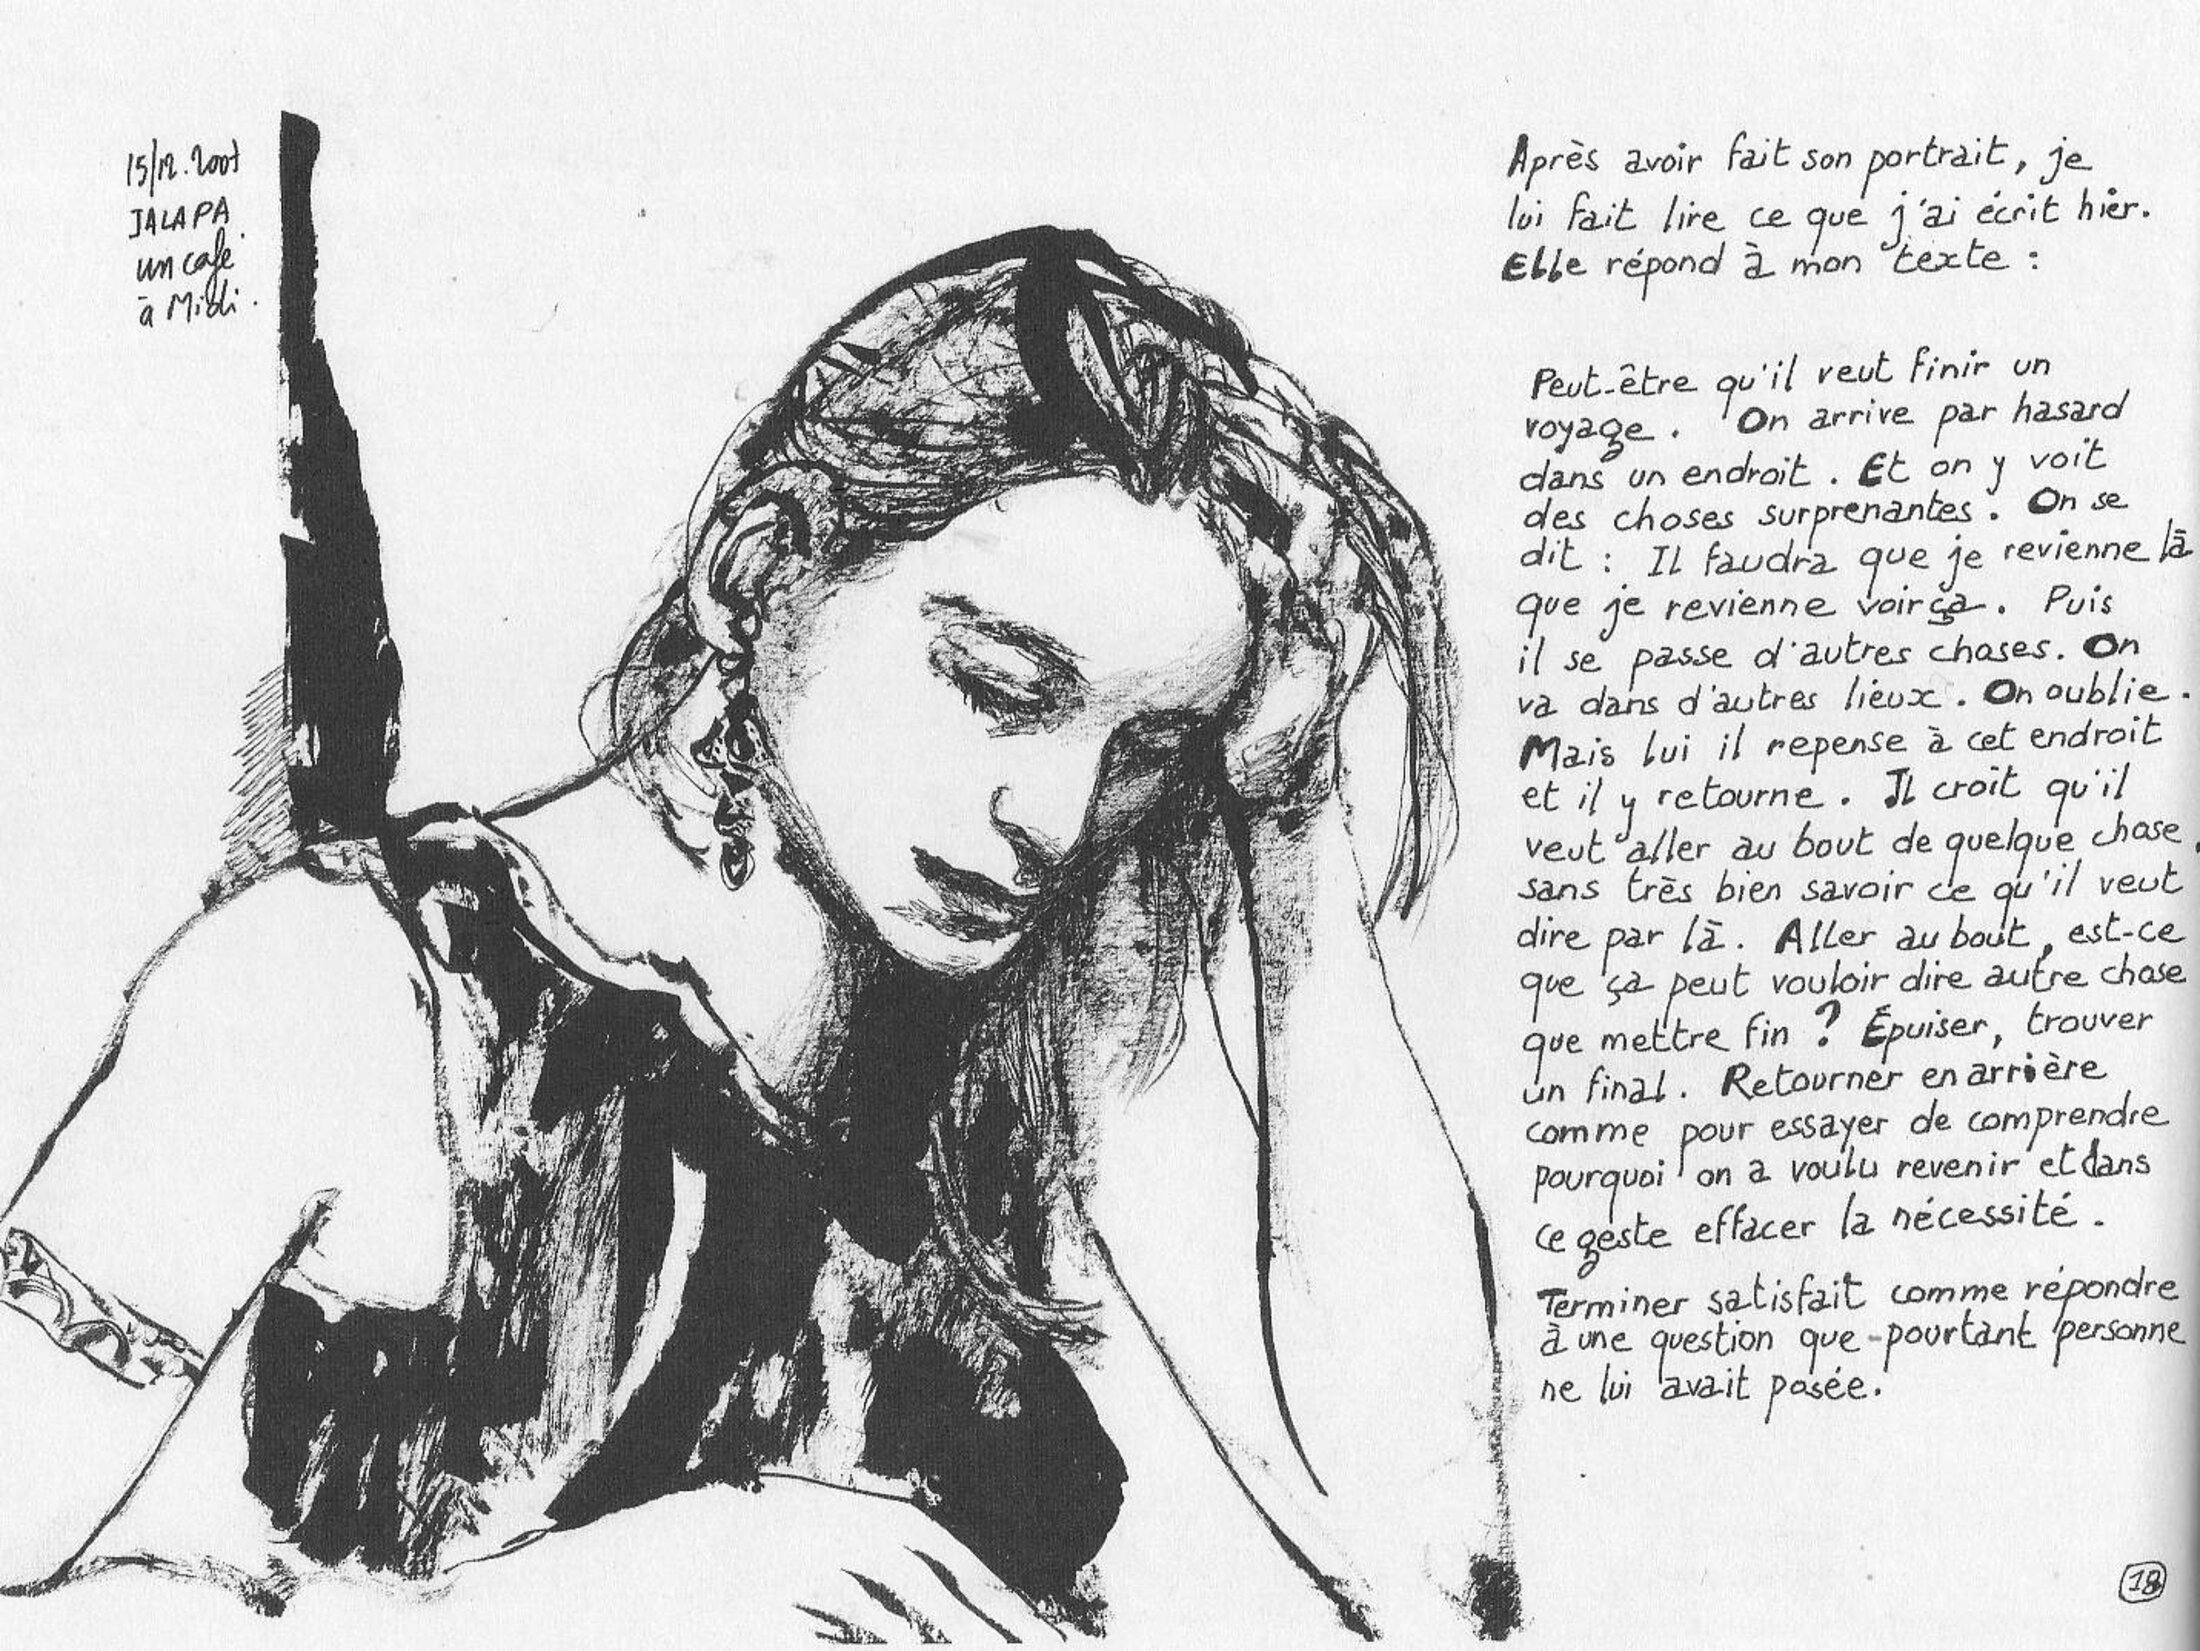 15/12.2007
JALAPA
un café
à Midi.
Après avoir fait son portrait, je
lui fait lire ce que j'ai écrit hier.
Elle répond à mon texte :
Peut-être qu'il veut finir un
voyage. On arrive par hasard
dans un endroit. Et on y voit
des choses surprenantes. On se
dit : Il faudra que je revienne là
que je revienne voir ça. Puis
il se passe d'autres choses. On
va dans d'autres lieux. On oublie.
Mais lui il repense à cet endroit
et il y retourne. Il croit qu'il
veut aller au bout de quelque chose,
sans très bien savoir ce qu'il veut
dire par là. Aller au bout, est-ce
que ça peut vouloir dire autre chose
que mettre fin ? Épuiser, trouver
un final. Retourner en arrière
comme pour essayer de comprendre
pourquoi on a voulu revenir et dans
ce geste effacer la nécessité.
Terminer satisfait comme répondre
à une question que pourtant personne
ne lui avait posée.
18